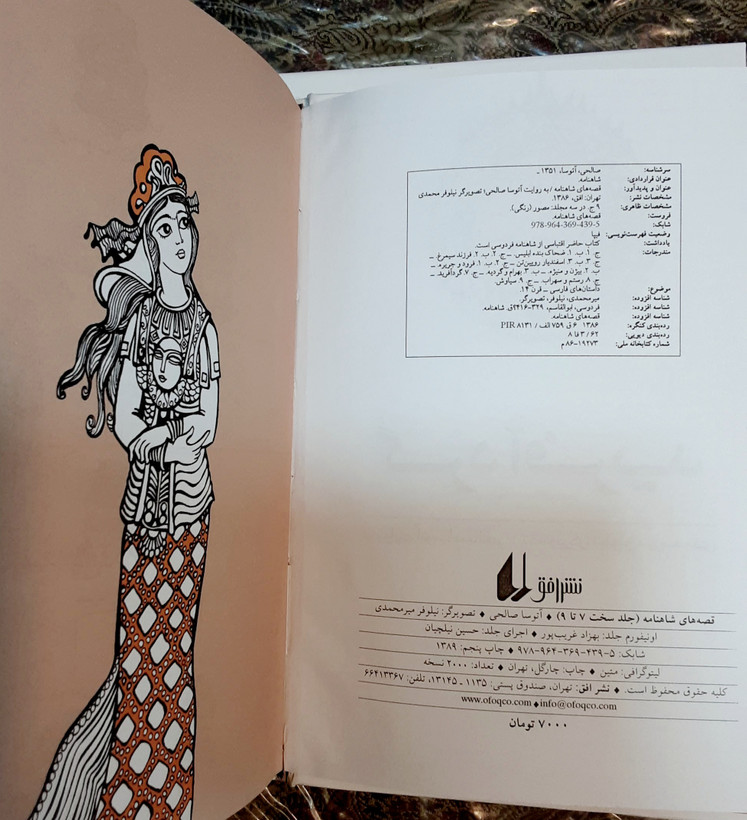 سرشناسه: صالحی، آتوسا، ۱۳۵۱ ـ
عنوان قراردادی: شاهنامه.
عنوان و پدیدآور: قصه‌های شاهنامه / به روایت آتوسا صالحی؛ تصویرگر نیلوفر میرمحمدی
مشخصات نشر: تهران: افق، ۱۳۸۶.
مشخصات ظاهری: ۹ ج. در سه مجلد: مصور (رنگی).
فروست: قصه‌های شاهنامه.
شابک: 978-964-369-439-5
وضعیت فهرست‌نویسی: فیپا
یادداشت: کتاب حاضر اقتباسی از شاهنامه فردوسی است.
مندرجات: ج. ۱. ب. ۱. ضحاک بنده ابلیس. ـ ج. ۲. ب. ۲. فرزند سیمرغ ـ
ج. ۳. ب. ۳. اسفندیار رویین‌تن ـ ج. ۴. ب. ۱. فرود و جریره. ـ
ب. ۲. بیژن و منیژه. ـ ب. ۳. بهرام و گردیه. ـ ج. ۷. گردآفرید. ـ
ج. ۸. رستم و سهراب. ـ ج. ۹. سیاوش.
موضوع: داستان‌های فارسی ـ قرن ۱۴.
شناسه افزوده: میرمحمدی، نیلوفر، تصویرگر.
شناسه افزوده: فردوسی، ابوالقاسم، ۳۲۹-۴۱۶؟ق. شاهنامه.
شناسه افزوده: قصه‌های شاهنامه.
رده‌بندی کنگره: ۱۳۸۶ ۶ ق ۷۵۹ الف / PIR ۸۱۳۱
رده‌بندی دیویی: ۶۲ / ۳ فا ۸
شماره کتابخانه ملی: ۱۹۲۷۳-۸۶ م
نشر افق
قصه‌های شاهنامه (جلد سخت ۷ تا ۹) ♦ آتوسا صالحی ♦ تصویرگر: نیلوفر میرمحمدی
اونیفورم جلد: بهزاد غریب‌پور ♦ اجرای جلد: حسین نیلچیان
شابک: ۵-۴۳۹-۳۶۹-۹۶۴-۹۷۸ ♦ چاپ پنجم: ۱۳۸۹
لیتوگرافی: متین ♦ چاپ: چارگل، تهران ♦ تعداد: ۲۰۰۰ نسخه
کلیه حقوق محفوظ است. ♦ نشر افق: تهران، صندوق پستی: ۱۱۳۵ ـ ۱۳۱۴۵، تلفن: ۶۶۴۱۳۳۶۷
www.ofoqco.com ♦ info@ofoqco.com
۷۰۰۰ تومان